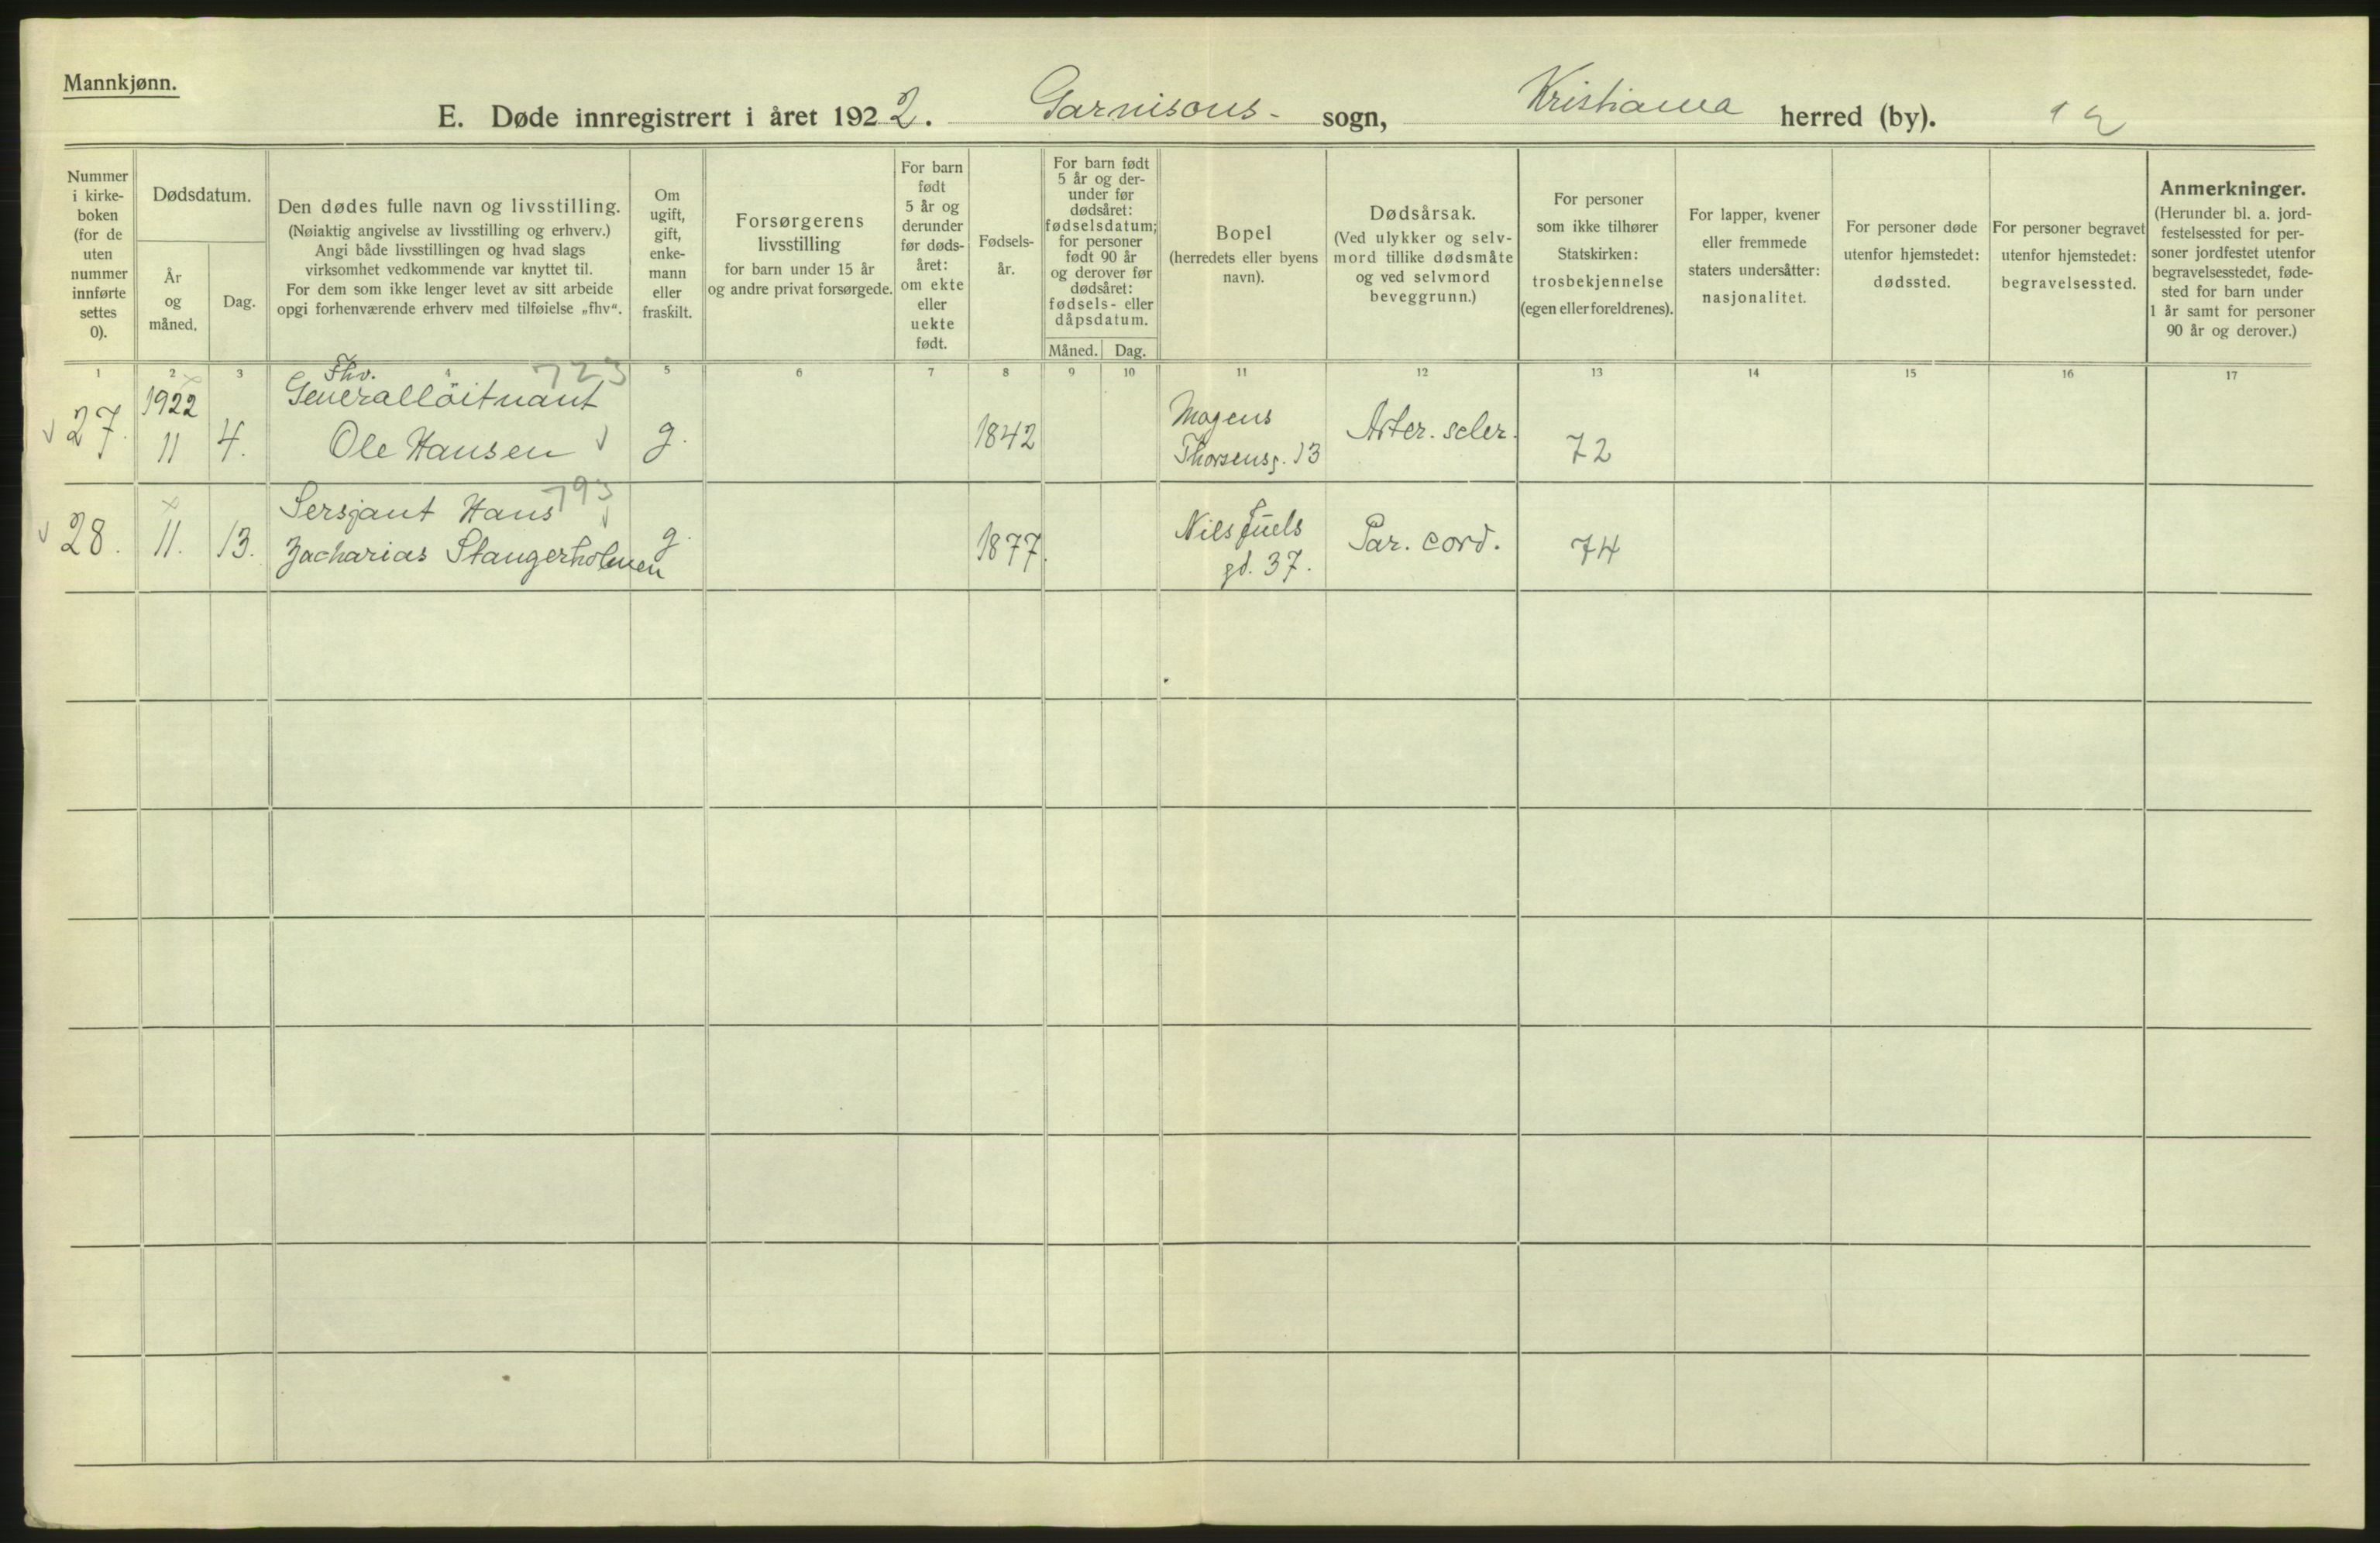 Mannkjønn.
E. Døde innregistrert i året 1922. Garnisons- sogn, Kristiania herred (by). 12
Nummer
i kirke-
boken
(for de
uten
nummer
innførte
settes
0).
Dødsdatum.
År
og
måned.
Dag.
Den dødes fulle navn og livsstilling.
(Nøiaktig angivelse av livsstilling og erhverv.)
Angi både livsstillingen og hvad slags
virksomhet vedkommende var knyttet til.
For dem som ikke lenger levet av sitt arbeide
opgi forhenværende erhverv med tilføielse „fhv“.
Om
ugift,
gift,
enke-
mann
eller
fraskilt.
Forsørgerens
livsstilling
for barn under 15 år
og andre privat forsørgede.
For barn
født
5 år og
derunder
før døds-
året:
om ekte
eller
uekte
født.
Fødsels-
år.
For barn født
5 år og der-
under før
dødsåret:
fødselsdatum;
for personer
født 90 år
og derover før
dødsåret:
fødsels- eller
dåpsdatum.
Måned. Dag.
Bopel
(herredets eller byens
navn).
Dødsårsak.
(Ved ulykker og selv-
mord tillike dødsmåte
og ved selvmord
beveggrunn.)
For personer
som ikke tilhører
Statskirken:
trosbekjennelse
(egen eller foreldrenes).
For lapper, kvener
eller fremmede
staters undersåtter:
nasjonalitet.
For personer døde
utenfor hjemstedet:
dødssted.
For personer begravet
utenfor hjemstedet:
begravelsessted.
Anmerkninger.
(Herunder bl. a. jord-
festelsessted for per-
soner jordfestet utenfor
begravelsesstedet, føde-
sted for barn under
1 år samt for personer
90 år og derover.)
1 2 3 4 5 6 7 8 9 10 11 12 13 14 15 16 17
Fhv. 723
1922 Generallöitnant Magens
27. 11 4. Ole Hansen g. 1842 Thorsensg. 13 Arter. scler. 72
793
Sersjant Hans Nils Juels
28. 11. 13. Zacharias Stangerholmen g. 1877. gd. 37. Par. cord. 74